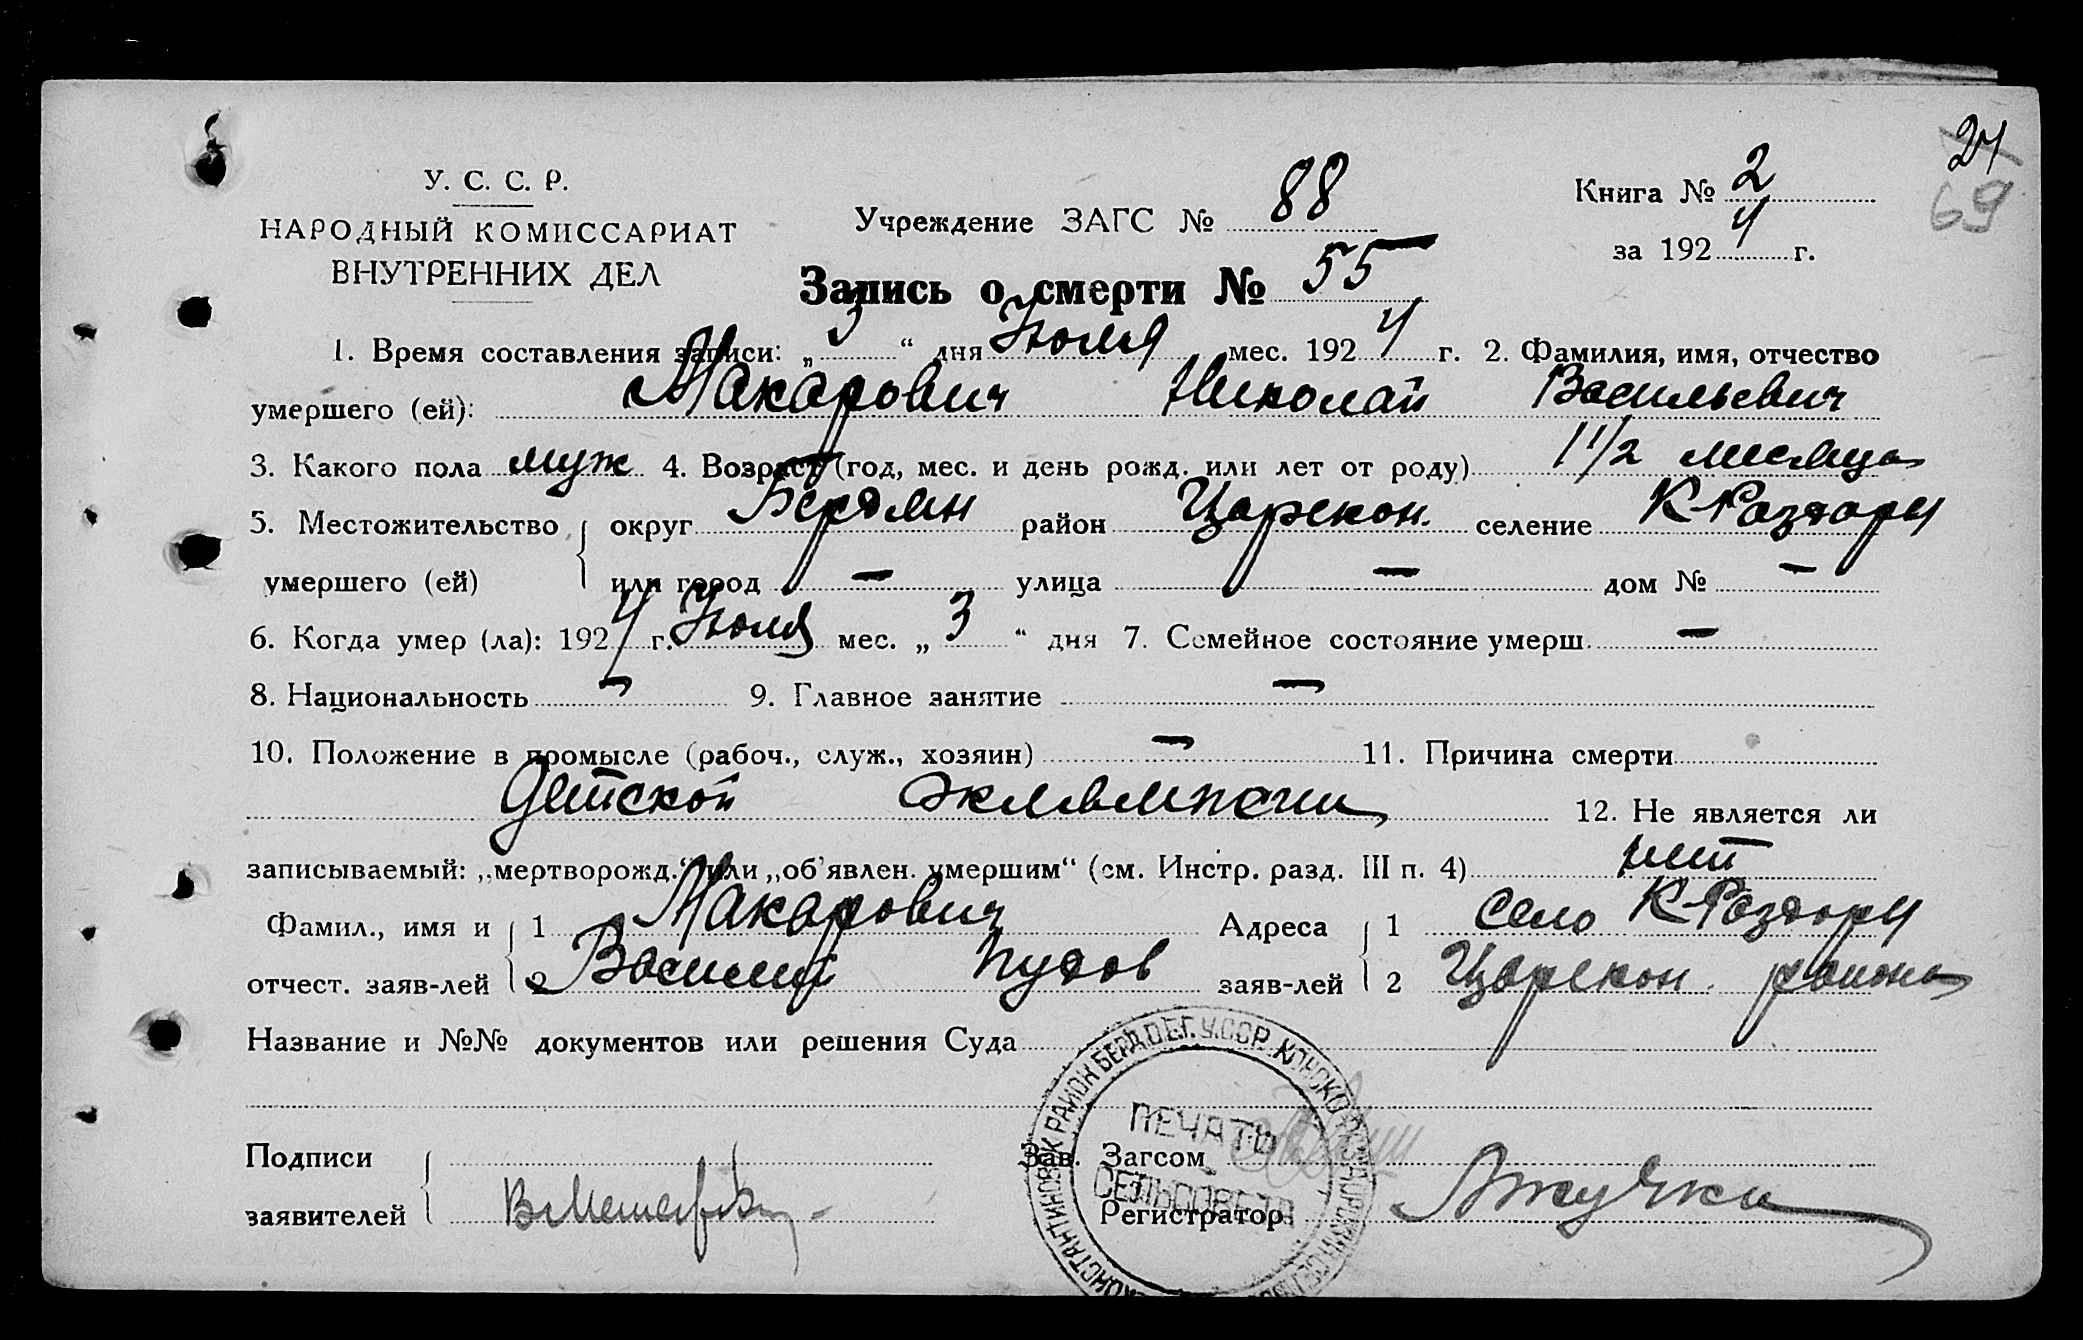 24
69
У. С. С. Р.
НАРОДНЫЙ КОМИССАРИАТ
ВНУТРЕННИХ ДЕЛ
Учреждение ЗАГС № 88
Книга № 2
за 1924 г.
Запись о смерти № 55
1. Время составления записи: „3“ дня Июля мес. 1924 г. 2. Фамилия, имя, отчество
умершего (ей): Макарович Николай Васильевич
3. Какого пола муж 4. Возраст (год, мес. и день рожд. или лет от роду) 1 1/2 месяца
5. Местожительство округ Бердян район Царекон. селение К-Раздоры
умершего (ей) или город — улица — дом № —
6. Когда умер (ла): 1924 г. Июля мес. „3“ дня 7. Семейное состояние умерш. —
8. Национальность — 9. Главное занятие —
10. Положение в промысле (рабоч., служ., хозяин) — 11. Причина смерти
Детской эклампсии 12. Не является ли
записываемый: „мертворожд.“ или „об'явлен. умершим“ (см. Инстр. разд. III п. 4) нет
Фамил., имя и 1 Макарович Адреса 1 село К-Раздоры
отчест. заяв-лей 2 Василий Пудов заяв-лей 2 Царекон. района
Название и №№ документов или решения Суда
ПЕЧАТЬ
СЕЛЬСОВЕТА
Подписи Зав. Загсом
заявителей Регистратор